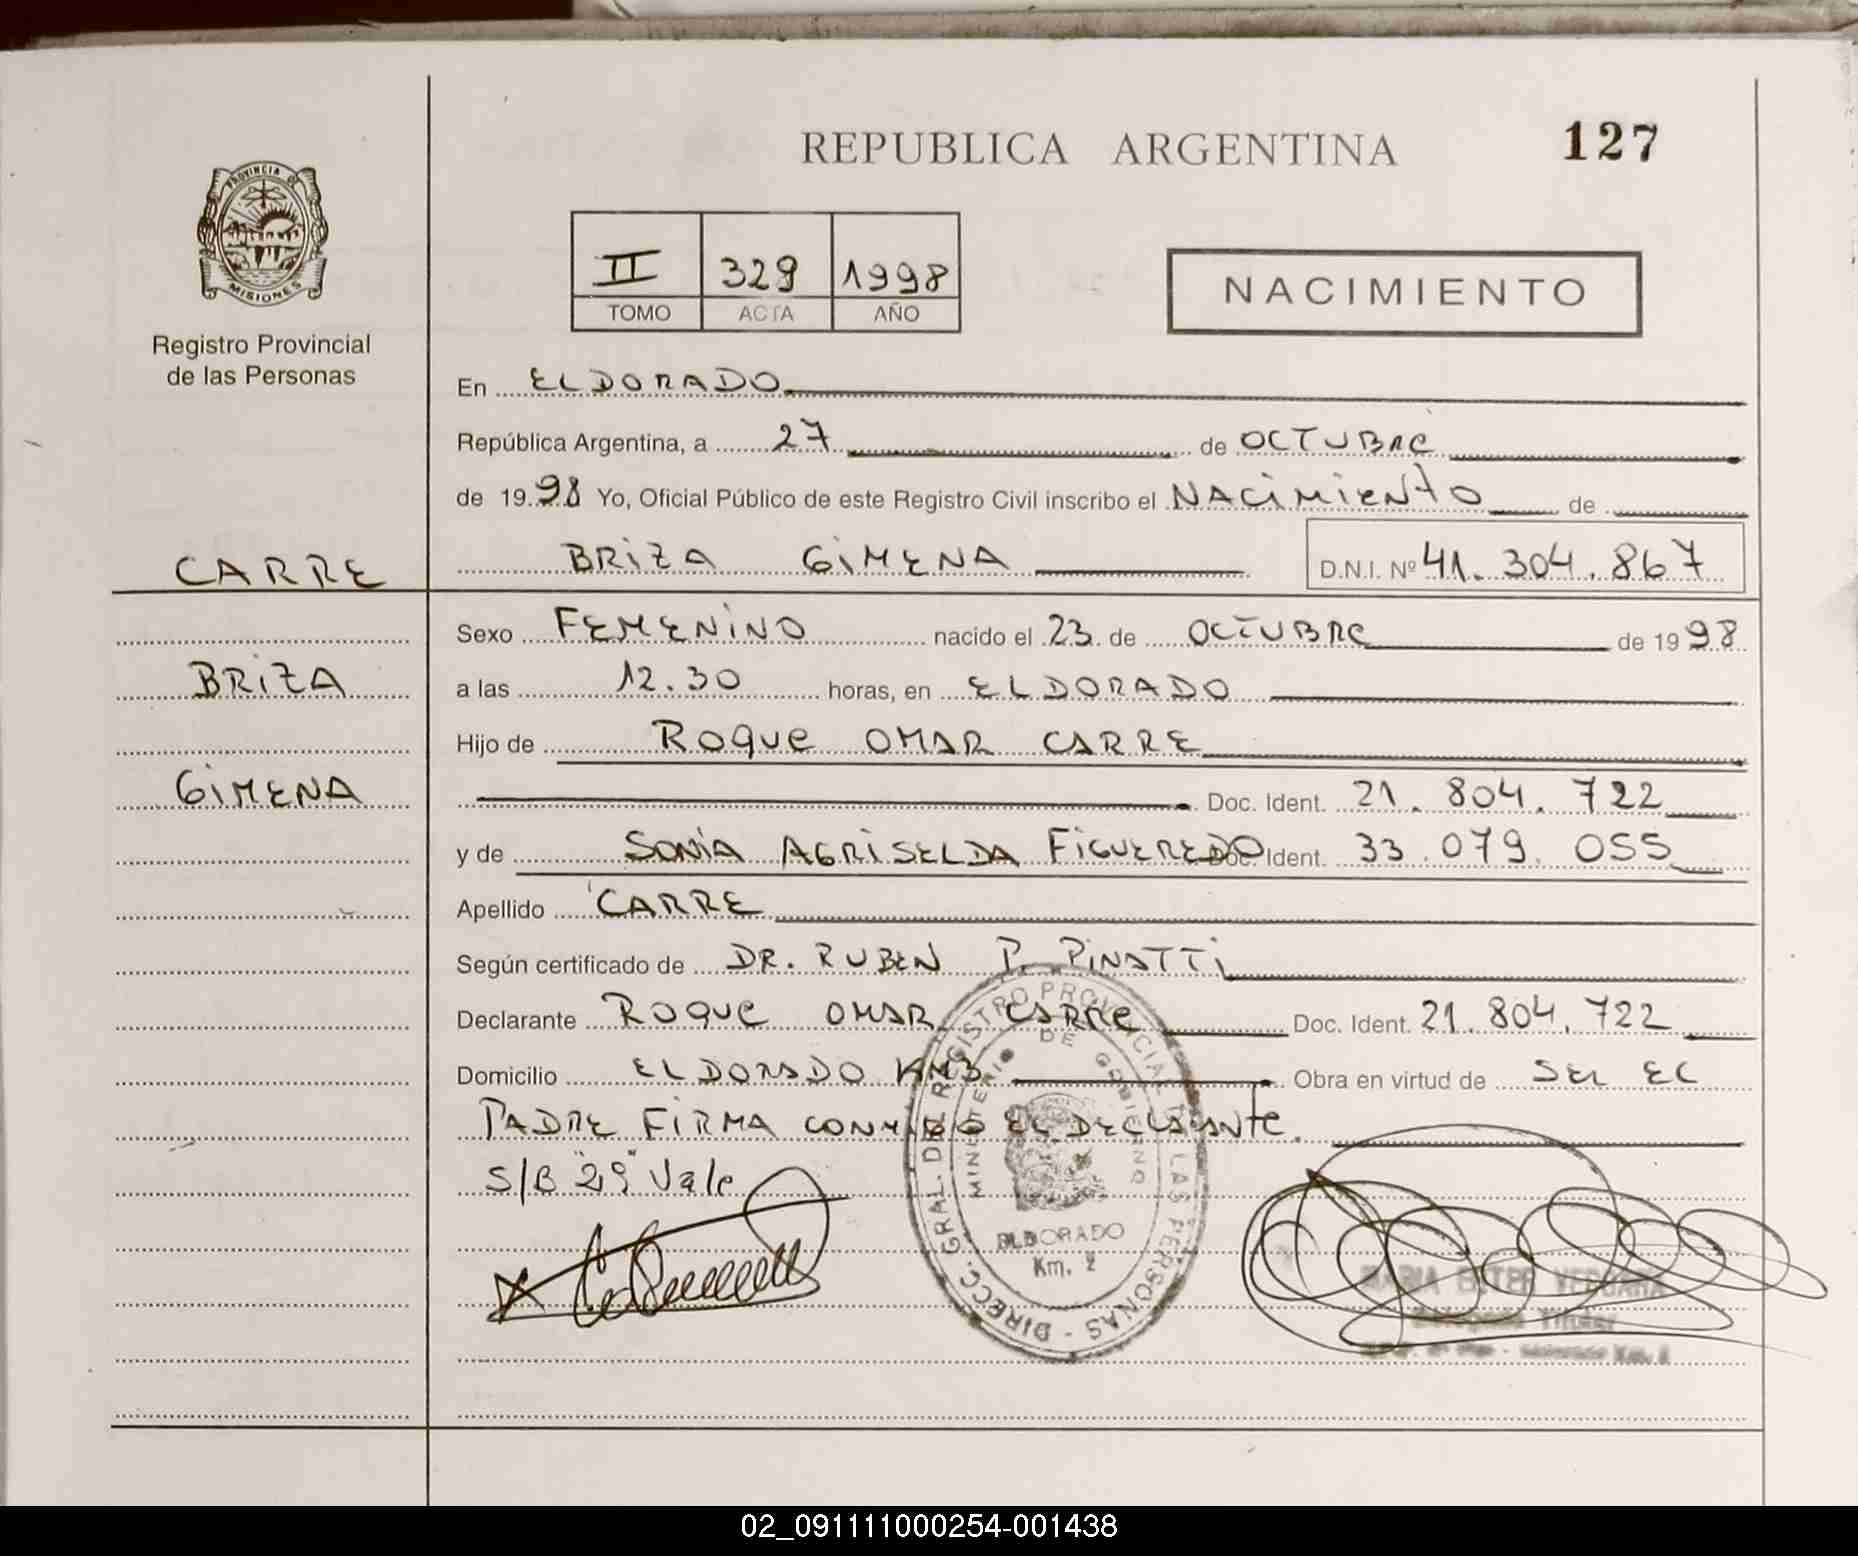 REPUBLICA ARGENTINA
127
PROVINCIA DE
MISIONES
Registro Provincial
de las Personas
II 329 1998
TOMO ACTA AÑO
NACIMIENTO
En ELDORADO
República Argentina, a 27 de OCTUBRE
de 1998 Yo, Oficial Público de este Registro Civil inscribo el NACIMIENTO de
CARRE
BRIZA GIMENA D.N.I. Nº 41.304.867
Sexo FEMENINO nacido el 23 de OCTUBRE de 1998
BRIZA
a las 12.30 horas, en ELDORADO
Hijo de ROQUE OMAR CARRE
GIMENA
Doc. Ident. 21.804.722
y de SONIA AGRISELDA FIGUEREDO Doc. Ident. 33.079.055
Apellido CARRE
Según certificado de DR. RUBEN P. PINATTI
Declarante ROQUE OMAR CARRE Doc. Ident. 21.804.722
Domicilio ELDORADO KM3 Obra en virtud de SER EL
PADRE FIRMA CONMIGO EL DECLARANTE.
S/B "29" Vale
DIRECC. GRAL. DE REGISTRO PROVINCIAL DE LAS PERSONAS -
MINISTERIO DE GOBIERNO
ELDORADO
Km. 2
MARIA ESTER VERGARA
Delegada Titular
02_091111000254-001438